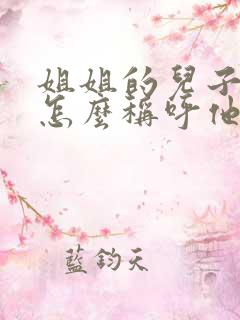 姐姐的兒子
怎麼稱呼他
藍鈞天